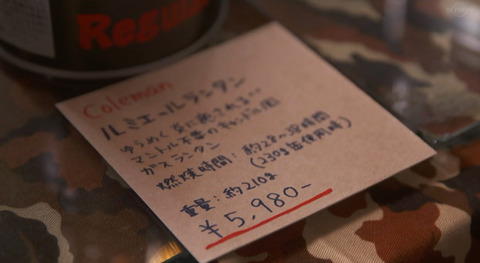 Regular
Coleman
ルミエールランタン
ゆらめく炎に癒される…
マントル不要のキャンドル風
ガスランタン
燃焼時間：約28〜38時間
(230g缶使用時)
重量：約210g
¥5,980-